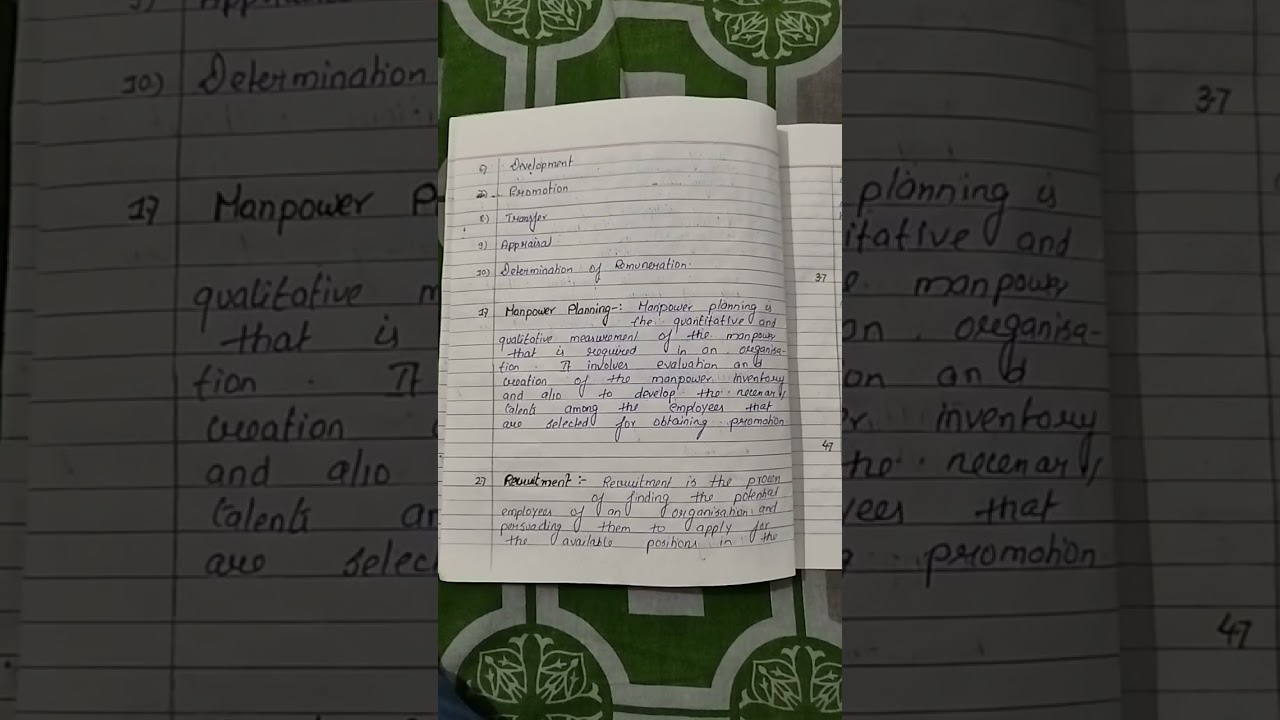 6) Development
7) Promotion
8) Transfer
9) Appraisal
10) Determination of Remuneration.
1) Manpower Planning-: Manpower planning is
the quantitative and
qualitative measurement of the manpower
that is required in an organisa-
tion. It involves evaluation and
creation of the manpower inventory
and also to develop the necessary
talents among the employees that
are selected for obtaining promotion
2) Recruitment :- Recruitment is the process
of finding the potential
employees of an organisation and
persuading them to apply for
the available positions in the
3)
4)